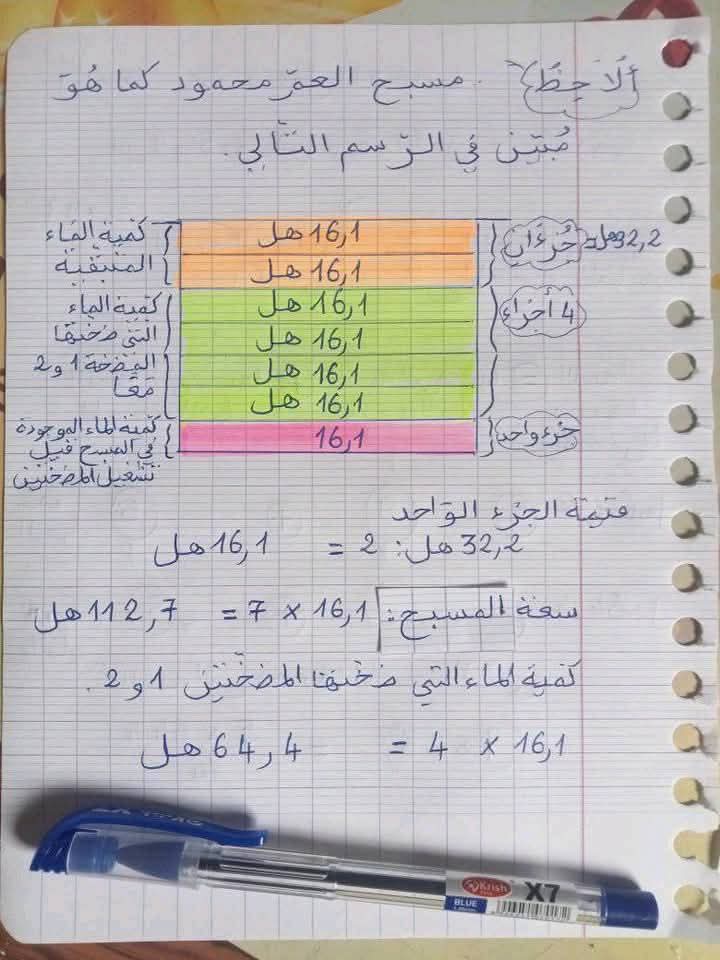 ألاحظ مسبح العم محمود كما هو
مبين في الرسم التالي.
كمية الماء
المتبقية
16,1 هل
16,1 هل
جزءان = 32,2 هل
كمية الماء
التي ضختها
المضخة 1 و 2
معا
16,1 هل
16,1 هل
16,1 هل
16,1 هل
4 أجزاء
كمية الماء الموجودة
في المسبح قبل
تشغيل المضختين
16,1
جزء واحد
قيمة الجزء الواحد
32,2 هل : 2 = 16,1 هل
سعة المسبح: 16,1 × 7 = 112,7 هل
كمية الماء التي ضختها المضختين 1 و 2.
16,1 × 4 = 64,4 هل
Krish
X7
BLUE